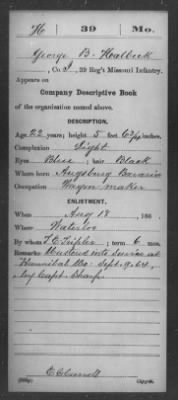 H 39 Mo.
George B. Halbeck
, Co. I, 39 Reg't Missouri Infantry.
Appears on
Company Descriptive Book
of the organization named above.
DESCRIPTION.
Age 22 years; height 5 feet 6¾ inches.
Complexion Light
Eyes Blue ; hair Black
Where born Augsburg Bavaria
Occupation Wagon maker
ENLISTMENT.
When Aug 18 , 186 .
Where Waterloo
By whom T. E. ; term 6 mos.
Remarks Mustered into service at
Hannibal Mo. Sept. 9. 64,
by Capt. Sharp.
(383g) Copyist.